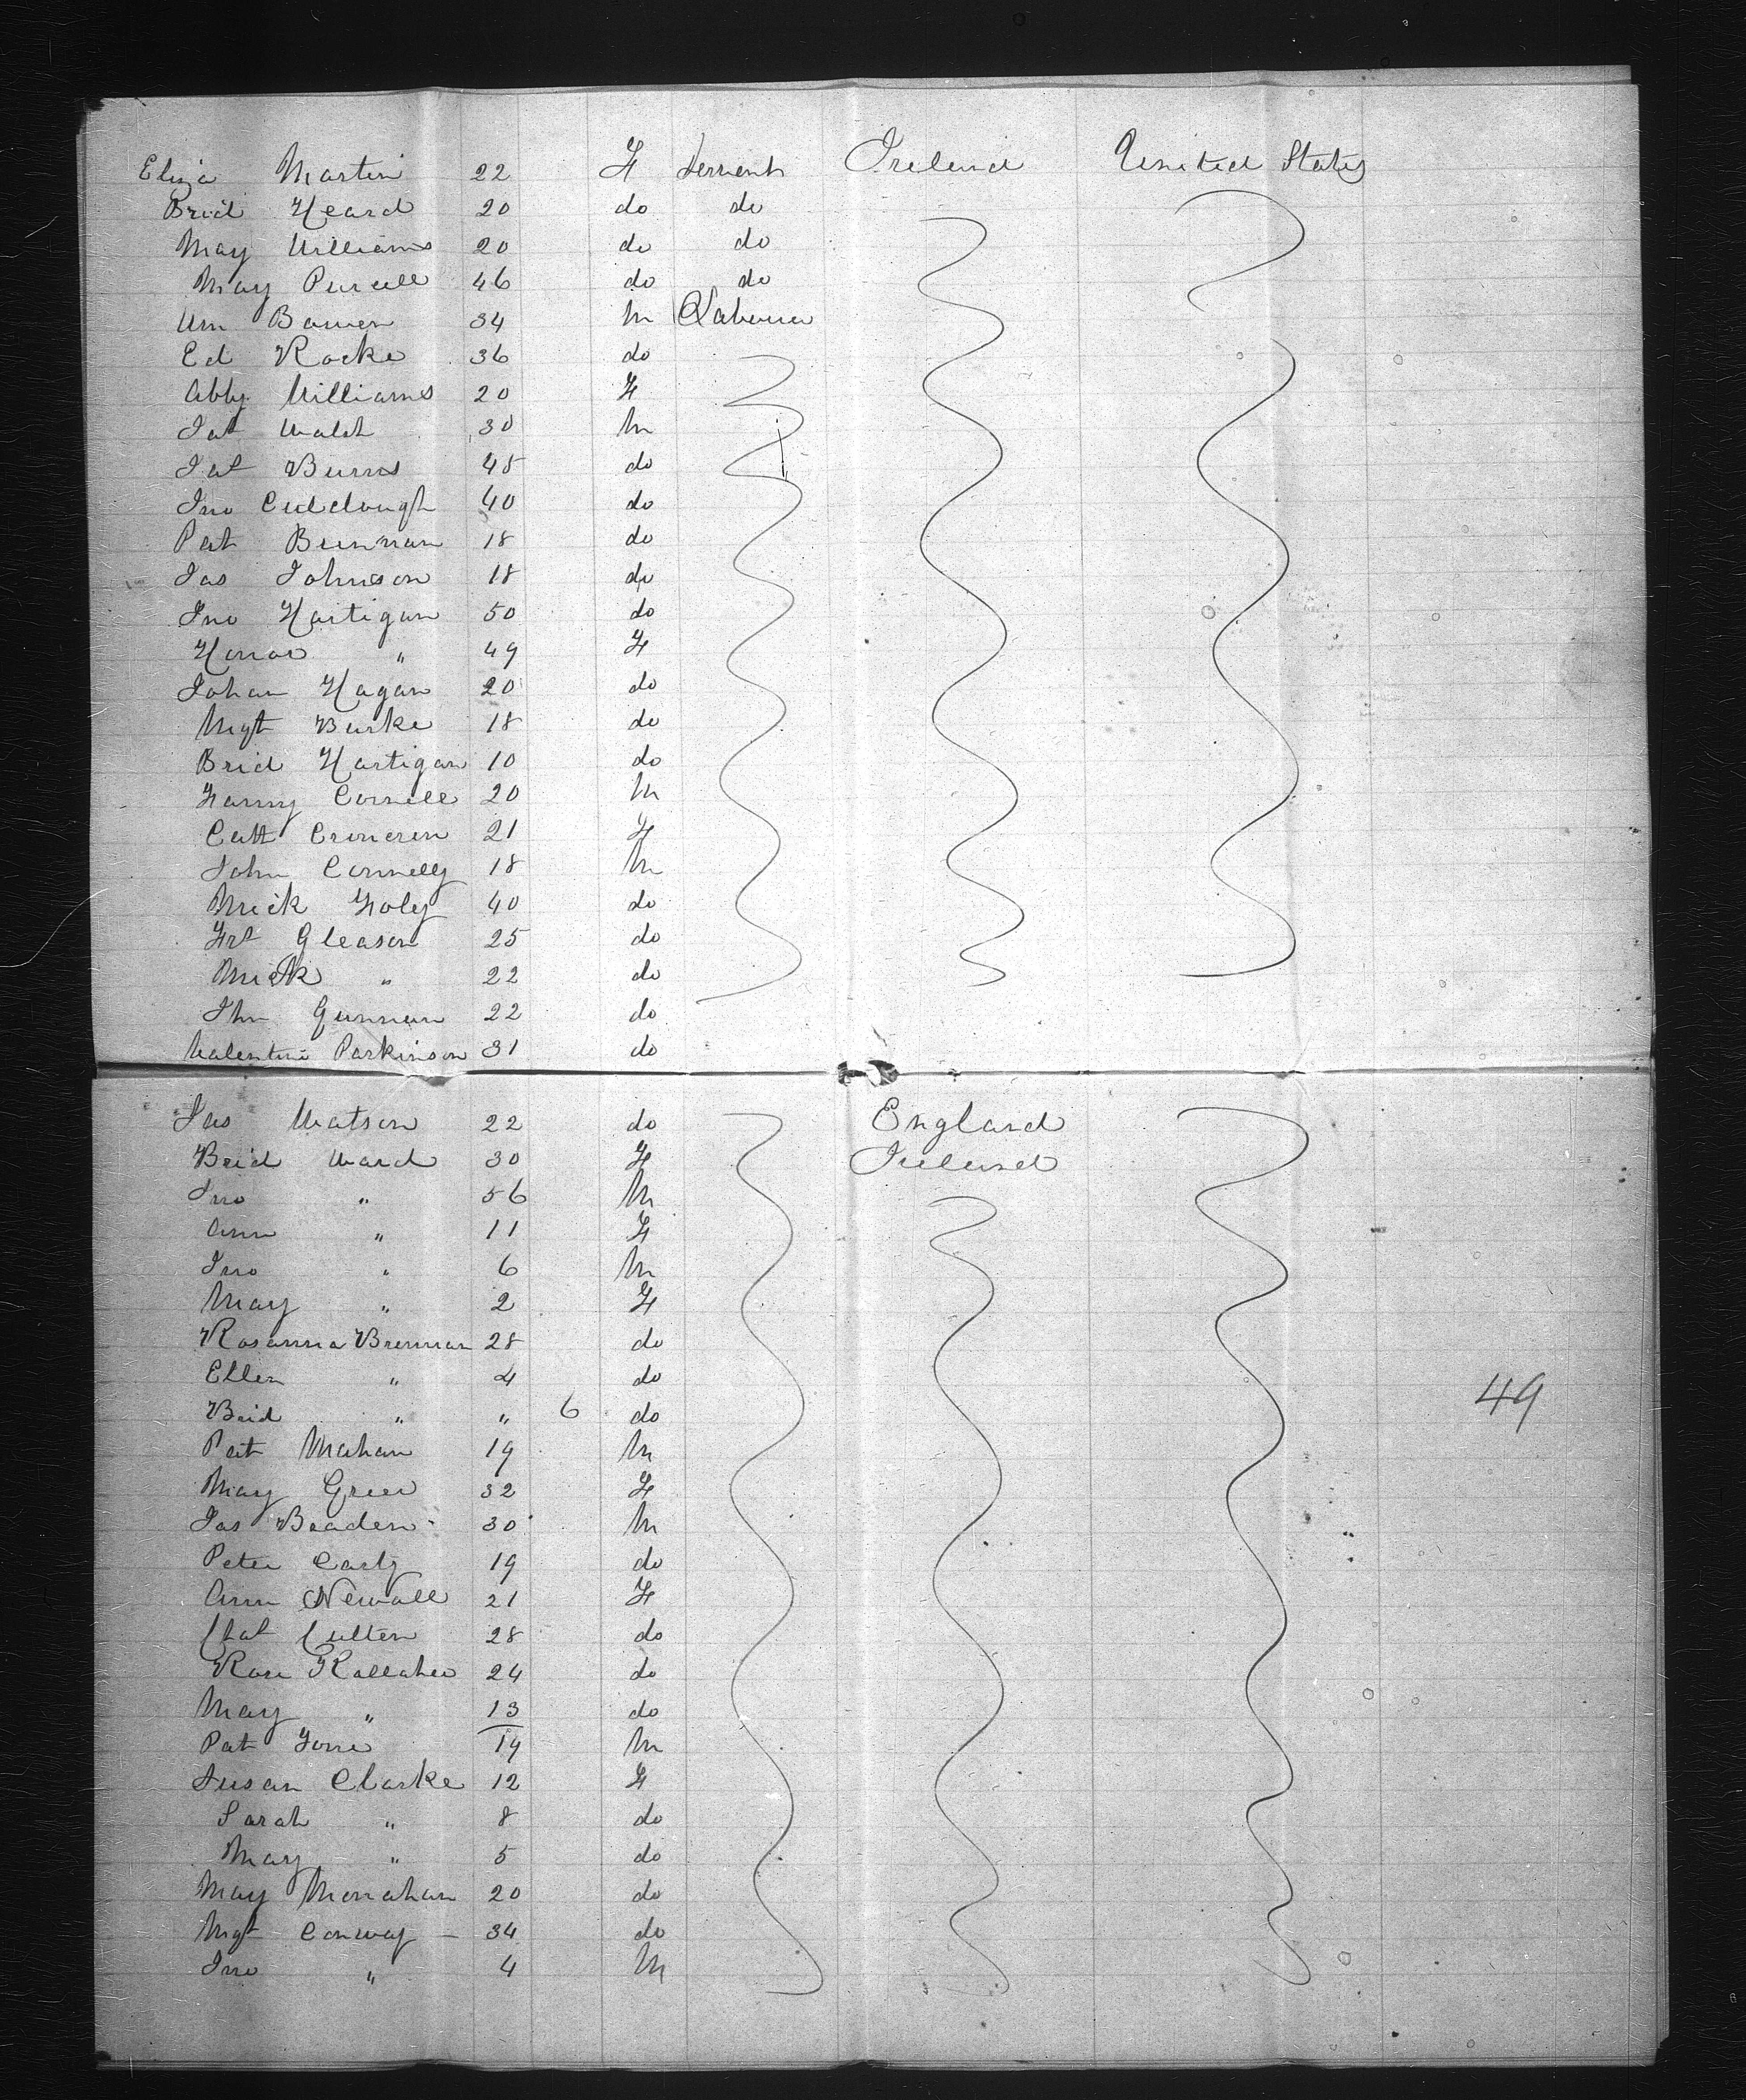 Eliza Martin 22 F Servant Ireland United States
Brid Heard 20 do do
May Williams 20 do do
May Purcell 46 do do
Wm Bowen 34 M Labourer
Ed Rocke 36 do
Abby Williams 20 F
Pat Walsh 30 M
Pat Burns 45 do
Jno Culclough 40 do
Pat Brennan 18 do
Jas Johnson 18 do
Jno Hartigan 50 do
Honor " 49 F
Johan Hagan 20 do
Mgt Burke 18 do
Brid Hartigan 10 do
Fanny Connell 20 M
Cath 21 F
John Connelly 18 M
Mick Foley 40 do
Gleason 25 do
Mick " 22 do
22 do
Valentine Parkinson 31 do
Jas Watson 22 do England
Brid Ward 30 F Ireland
Jno " 56 M
Ann " 11 F
Jno " 6 M
May " 2 F
Rosanna Brennan 28 do
Ellen " 4 do
Brid " " 6 do
49
Pat Mahan 19 M
May Greer 32 F
Jas Braden 30 M
Peter Carty 19 do
Ann Newall 21 F
Cullen 28 do
Rose Kallaher 24 do
May " 13 do
Pat 19 M
Susan Clarke 12 F
Sarah " 8 do
May " 5 do
May Monahan 20 do
Mgt Conway - 34 do
Jno " 4 M